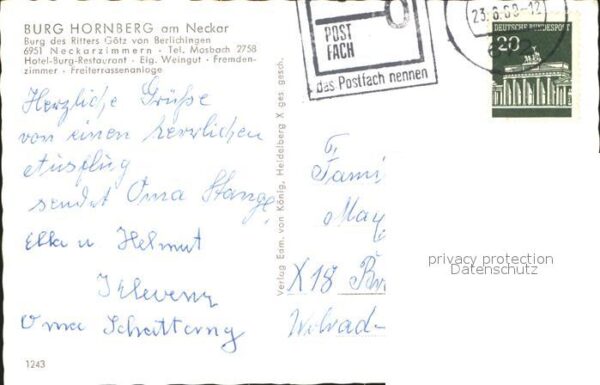 BURG HORNBERG am Neckar
Burg des Ritters Götz von Berlichingen
6951 Neckarzimmern · Tel. Mosbach 2758
Hotel-Burg-Restaurant · Eig. Weingut · Fremden-
zimmer · Freiterrassenanlage
Herzliche Grüße
von einen herrlichen
Ausflug
sendet Oma Stange
Elka u. Helmut
Oma Schattung
1243
Verlag Edm. von König, Heidelberg X ges. gesch.
POST
FACH
das Postfach nennen
23.6.69-12
DEUTSCHE BUNDESPOST
20
Fami
May
X18
privacy protection
Datenschutz